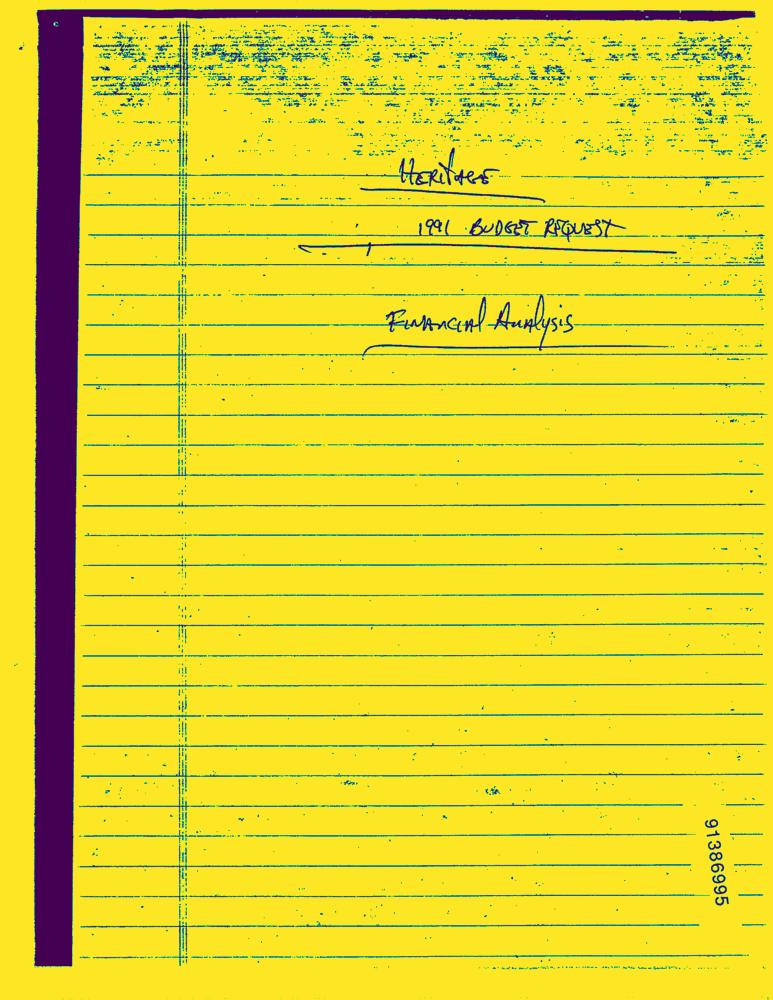 HERITAGE
1991 BUDGET REQUEST
FINANCIAL ANALYSIS
91386995